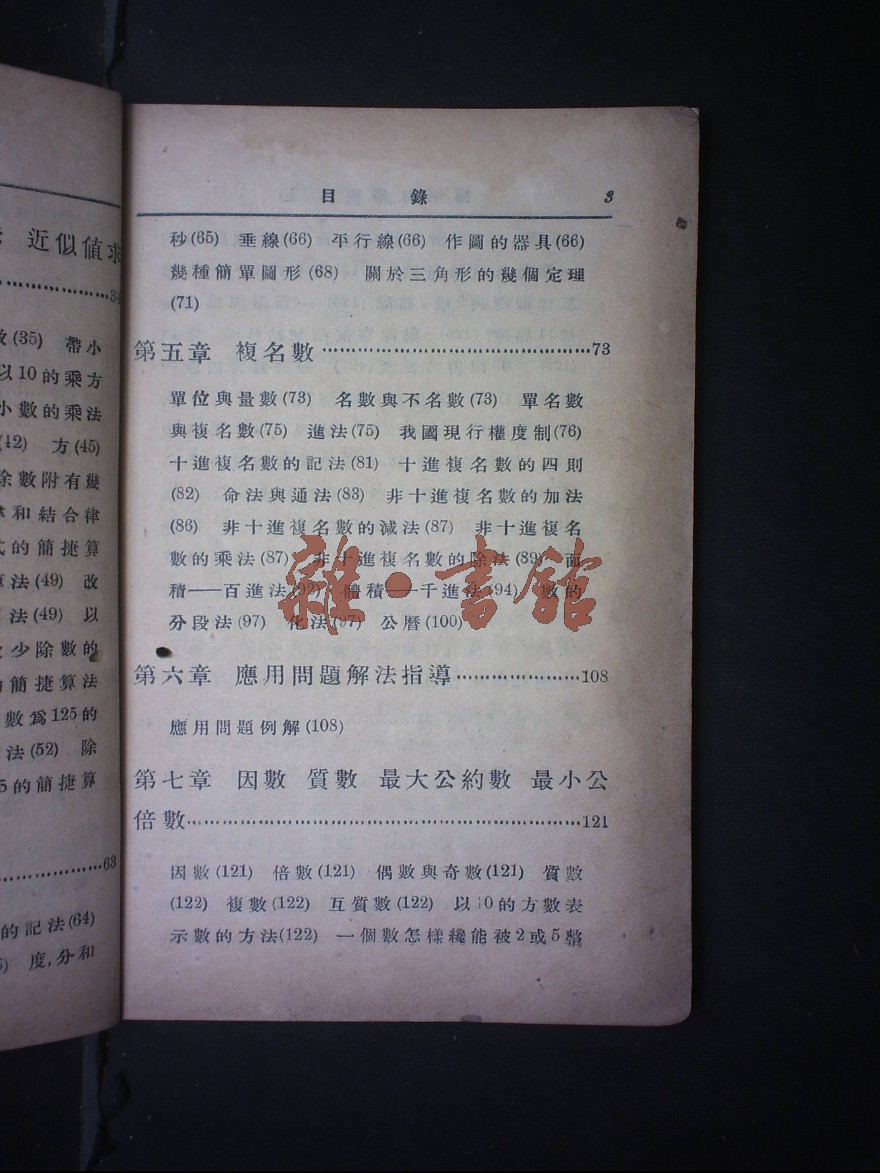 近似值求
34
(35) 帶小
以10的乘方
小數的乘法
(42) 方(45)
除數附有幾
和結合律
式的簡捷算
算法(49) 改
算法(49) 以
少除數的
的簡捷算法
數爲125的
法(52) 除
5的簡捷算
63
的記法(64)
度,分和
目錄 3
秒(65) 垂線(66) 平行線(66) 作圖的器具(66)
幾種簡單圖形(68) 關於三角形的幾個定理
(71)
第五章 複名數……………………………………73
單位與量數(73) 名數與不名數(73) 單名數
與複名數(75) 進法(75) 我國現行權度制(76)
十進複名數的記法(81) 十進複名數的四則
(82) 命法與通法(83) 非十進複名數的加法
(86) 非十進複名數的減法(87) 非十進複名
數的乘法(87) 非十進複名數的除法(89) 面
積——百進法(92) 體積——千進法(94) 數的
分段法(97) 化法(97) 公曆(100)
雜·書館
第六章 應用問題解法指導…………………108
應用問題例解(108)
第七章 因數 質數 最大公約數 最小公
倍數……………………………………………………121
因數(121) 倍數(121) 偶數與奇數(121) 質數
(122) 複數(122) 互質數(122) 以10的方數表
示數的方法(122) 一個數怎樣纔能被2或5整